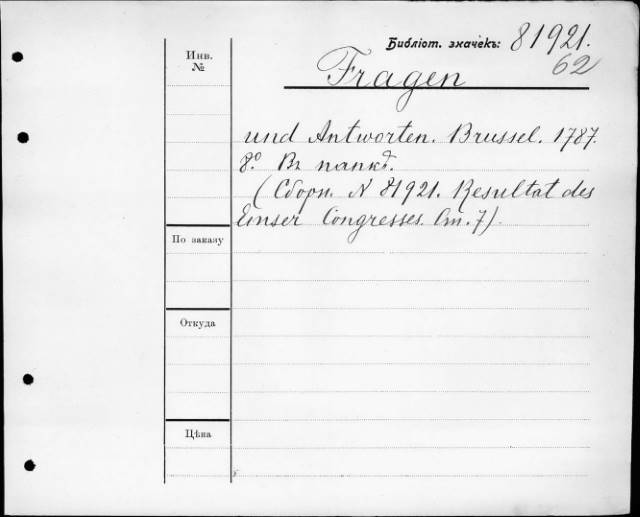 Библіот. значекъ: 81921.
62
Инв.
№
Fragen
und Antworten. Brussel. 1787.
8º. Въ папкѣ.
(Сборн. N 81921. Resultat des
Emser Congresses. Ст. 7).
По заказу
Откуда
Цѣна